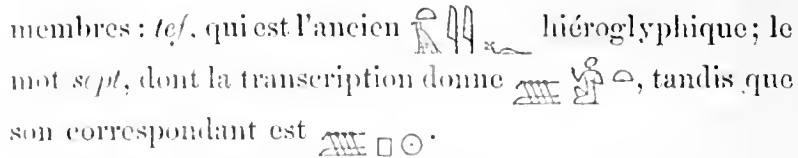 membres : tef, qui est l'ancien hiéroglyphique ; le
mot sept, dont la transcription donne , tandis que
son correspondant est .